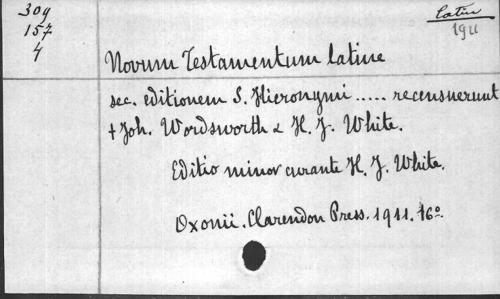 309
157
4
latin
1911
Novum Testamentum latine
sec. editionem S. Hieronymi ..... recensuerunt
+ Joh. Wordsworth & H. J. White.
Editio minor curante H. J. White.
Oxonii. Clarendon Press. 1911. 16º.